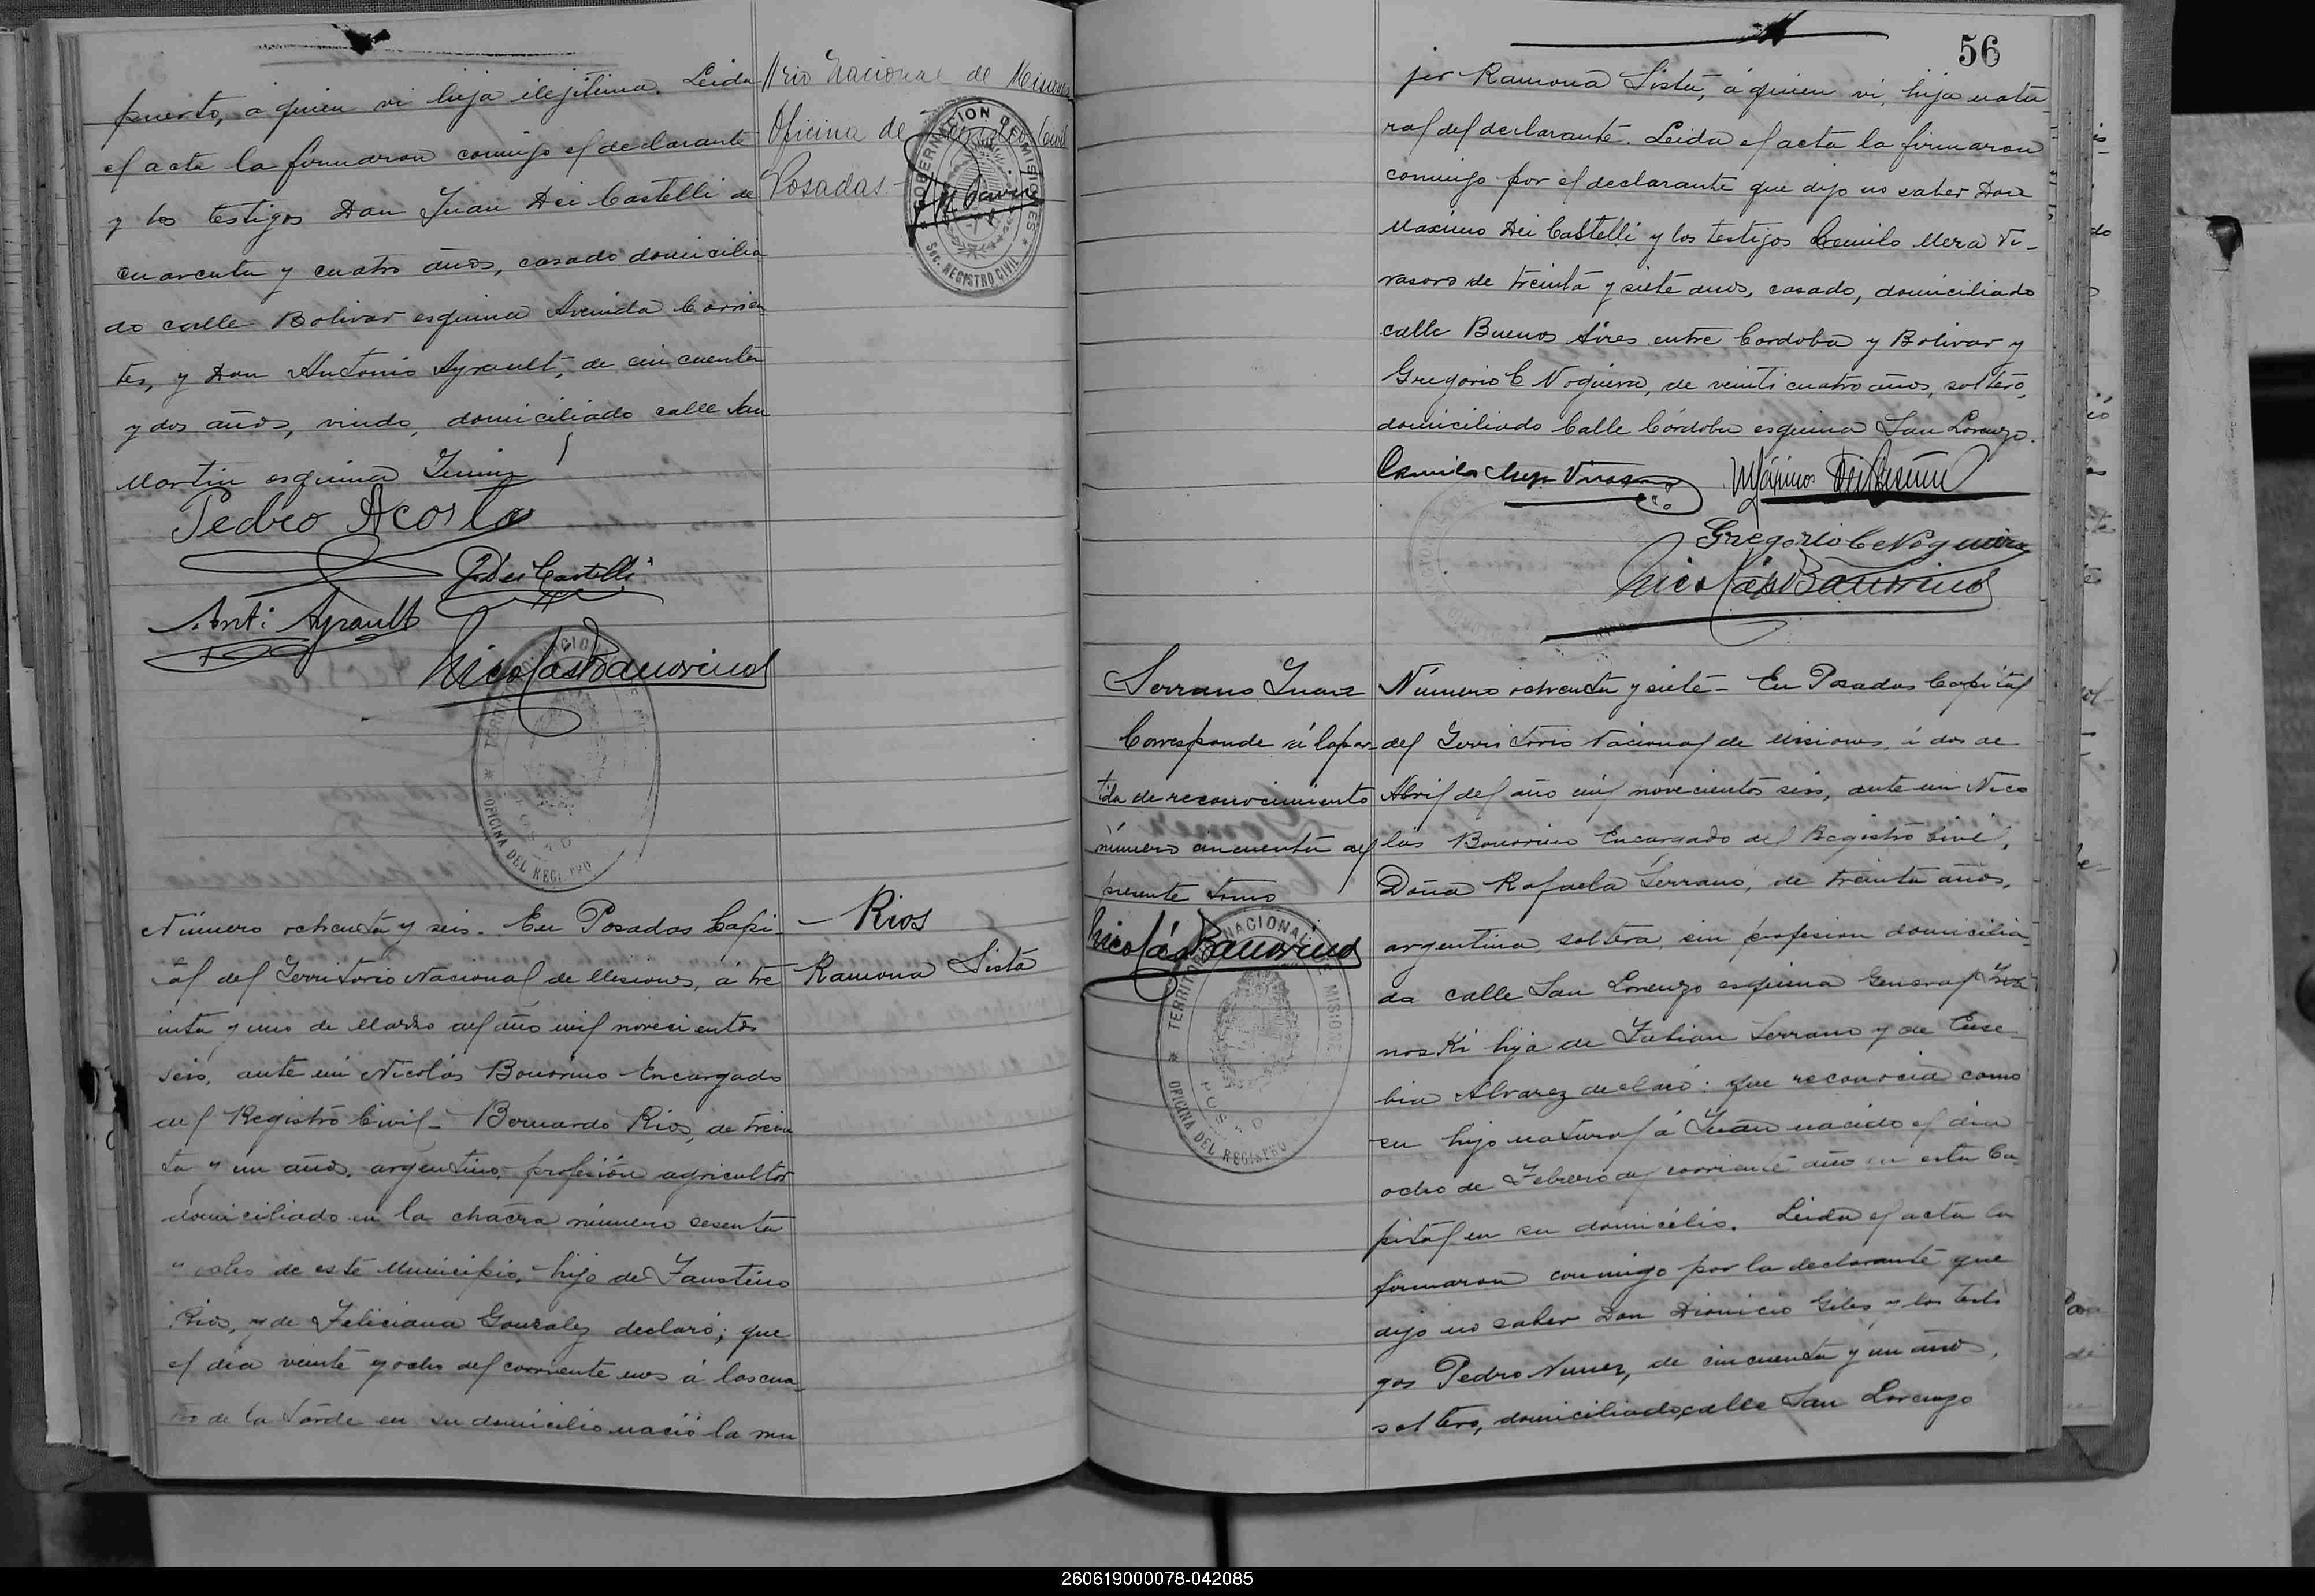 puerto, á quien vi hija ilejitima. Leida
el acta la firmaron conmigo el declarante
y los testigos Don Juan Dei Castelli de
cuarenta y cuatro años, casado domicilia
do calle Bolivar esquina Avenida Corrien
tes, y Don Antonio Ayrault, de cincuenta
y dos años, viudo, domiciliado calle San
Martin esquina Junin
Pedro Acosta
J. Dei Castelli
Ant: Ayrault
Nicolás Bonorino
TERRITORIO NACIONAL DE
OFICINA DEL REGISTRO
Número ochenta y seis. En Posadas Capi-
tal del Territorio Nacional de Misiones, á tre
inta y uno de Marzo del año mil novecientos
seis, ante mi Nicolás Bonorino Encargado
del Registro Civil- Bernardo Rios, de trein
ta y un años, argentino, profesión agricultor
domiciliado en la chacra número sesenta
y ocho de este Municipio, hijo de Faustino
Rios, y de Feliciana Gonzalez declaró; que
el dia veinte y ocho del corriente mes á las cua
tro de la tarde en su domicilio nació la mu
rio Nacional de Misiones
Oficina de Registro Civil
Posadas-
GOBERNACION DE MISIONES
SEC. REGISTRO CIVIL
- Rios
Ramona Sista
56
jer Ramona Sista, á quien vi, hija natu
ral del declarante. Leida el acta la firmaron
conmigo por el declarante que dijo no saber Don
Maximo Dei Castelli y los testigos Camilo Mera Vi-
rasoro de treinta y siete años, casado, domiciliado
calle Buenos Aires entre Cordoba y Bolivar y
Gregorio C Noguera, de veinticuatro años, soltero,
domiciliado Calle Córdoba esquina San Lorenzo.
Camilo Mera Virasoro
Máximo Dei Castelli
Gregorio C Noguera
Nicolás Bonorino
Serrano Juan
Corresponde á la par-
tida de reconocimiento
número cincuenta del
presente tomo
Nicolás Bonorino
TERRITORIO NACIONAL DE MISIONES
POSAD
OFICINA DEL REGISTRO
Número ochenta y siete- En Posadas Capital
del Territorio Nacional de Misiones, á dos de
Abril del año mil novecientos seis, ante mi Nico
lás Bonorino Encargado del Registro Civil,
Doña Rafaela Serrano, de treinta años,
argentina, soltera, sin profesion domicilia
da calle San Lorenzo esquina General
noski hija de Fabian Serrano y de Euse-
bia Alvarez declaró: que reconocia como
su hijo natural á Juan nacido el dia
ocho de Febrero del corriente año en esta Ca-
pital en su domicilio. Leida el acta la
firmaron conmigo por la declarante que
dijo no saber Don Dionicio Giles y los testi
gos Pedro Nunez, de cincuenta y un años,
soltero, domiciliado, calle San Lorenzo
260619000078-042085